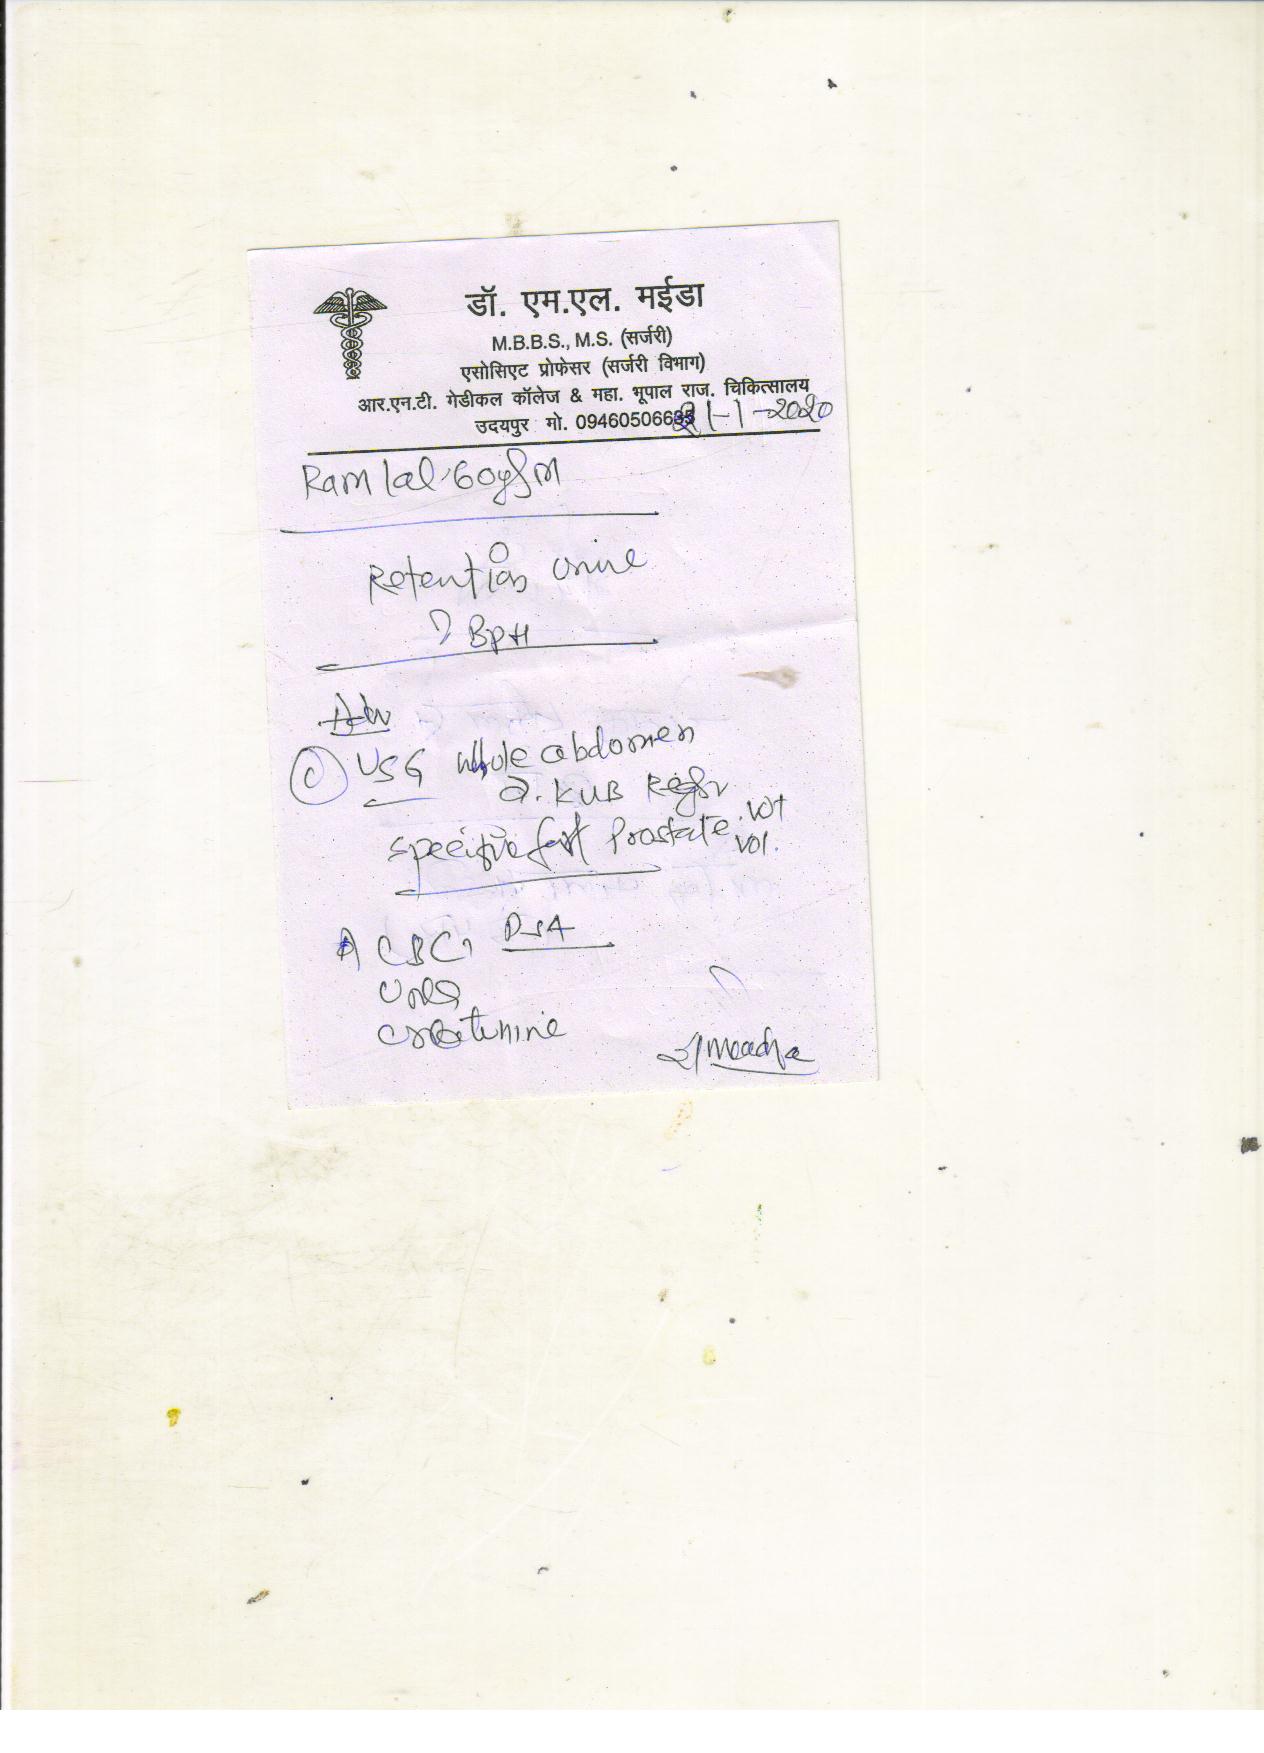 डॉ. एम.एल. मईडा
M.B.B.S., M.S. (सर्जरी)
एसोसिएट प्रोफेसर (सर्जरी विभाग)
आर.एन.टी. गेडीकल कॉलेज & महा. भूपाल राज. चिकित्सालय
उदयपुर मो. 09460506635
-1-2020
Ram lal 60y/m
Retention urine
? BPH
Adv
USG whole abdomen
KUB Region
specific for Prostate wt
vol.
CBC, PSA
Urea
Creatinine